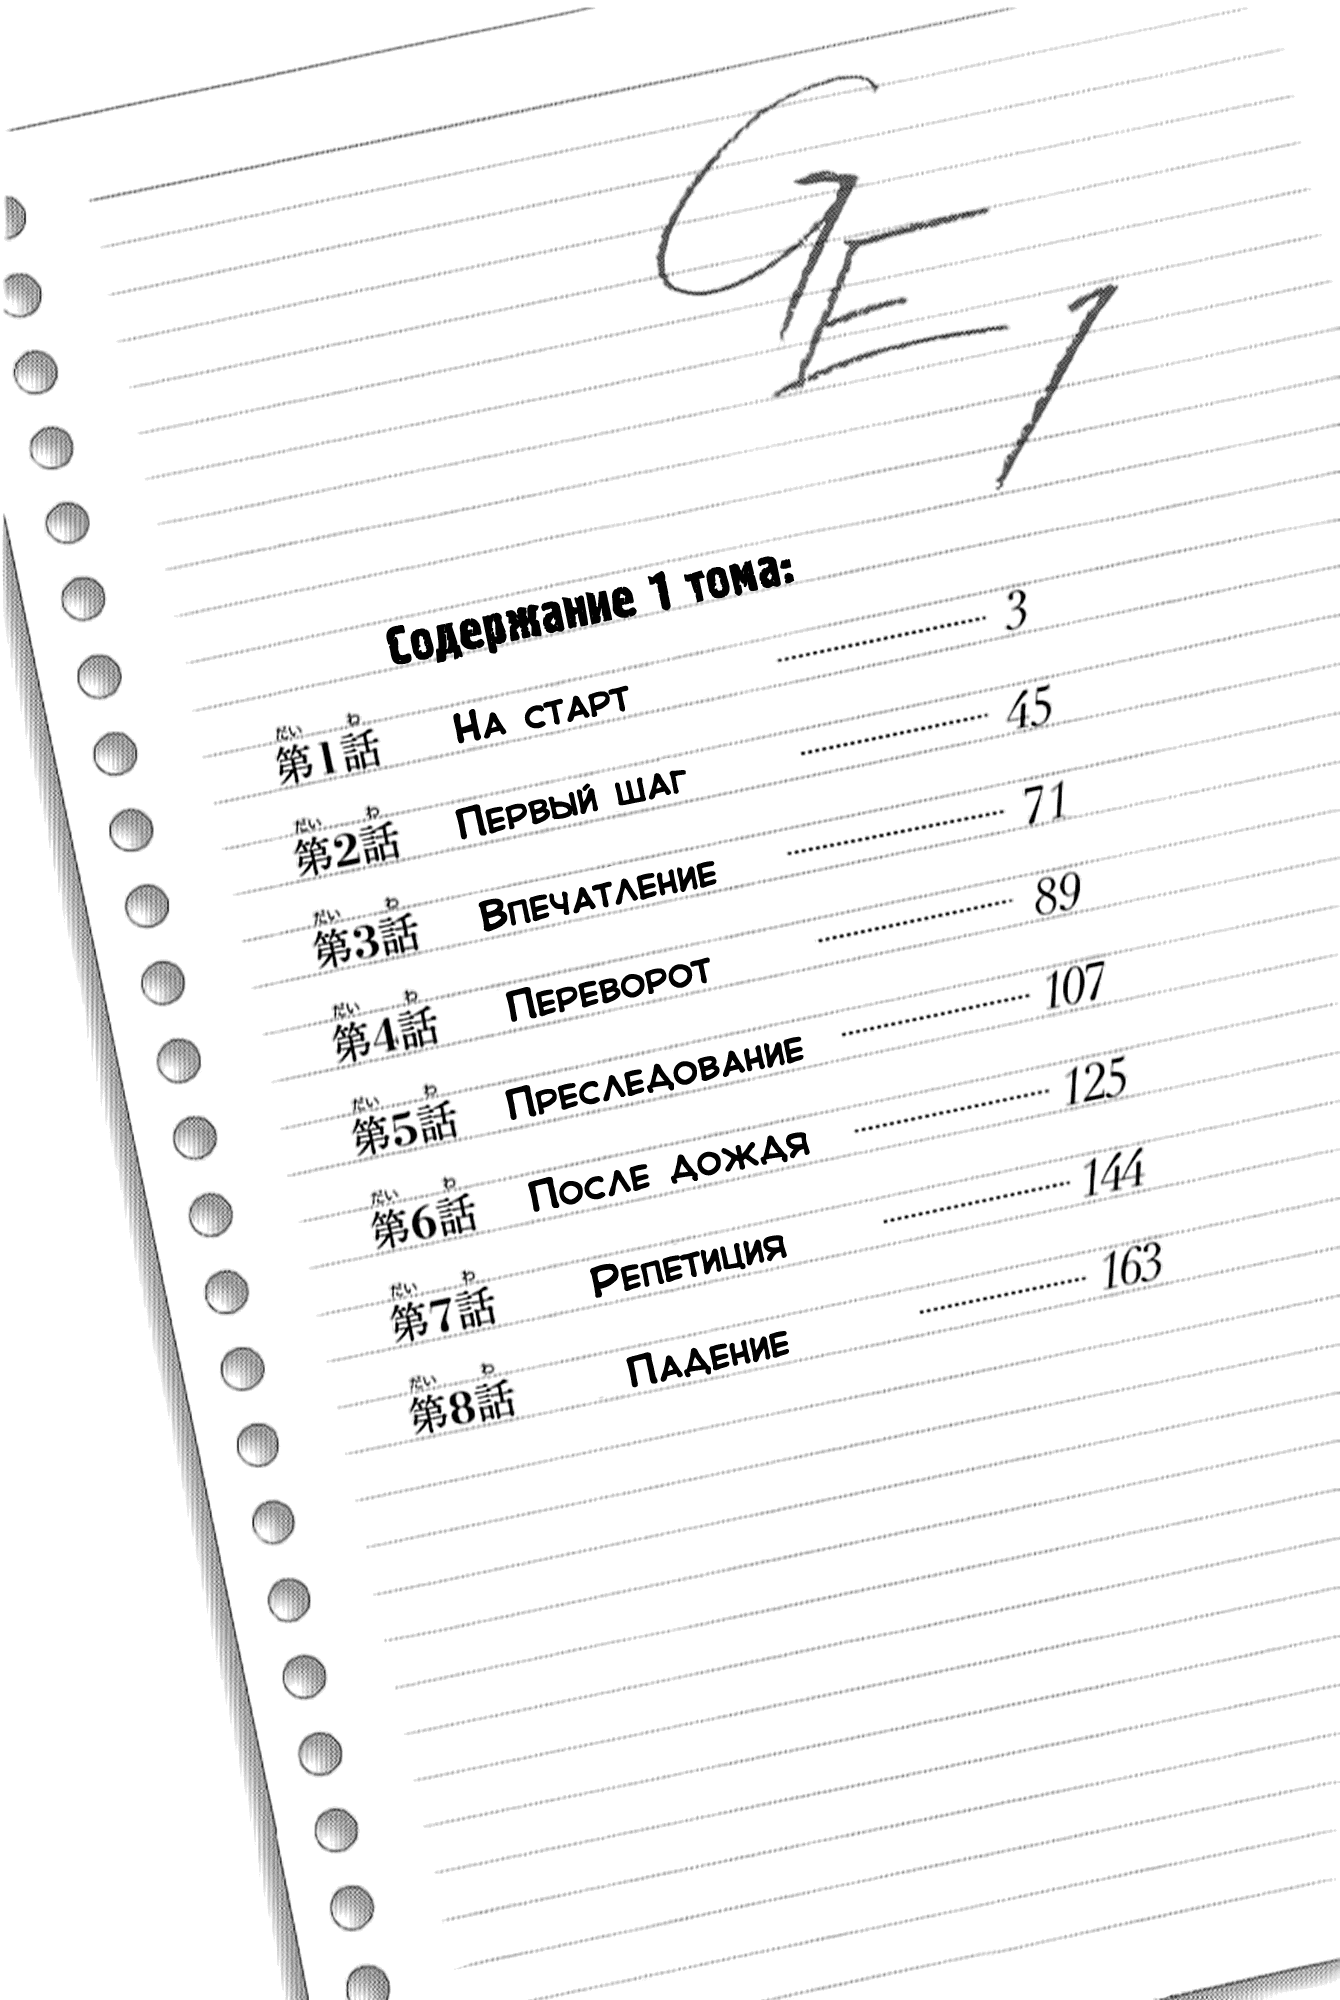 GE 1
Содержание 1 тома:
第1話 На старт 3
だい わ
第2話 Первый шаг 45
だい わ
第3話 Впечатление 71
だい わ
第4話 Переворот 89
だい わ
第5話 Преследование 107
だい わ
第6話 После дождя 125
だい わ
第7話 Репетиция 144
だい わ
第8話 Падение 163
だい わ